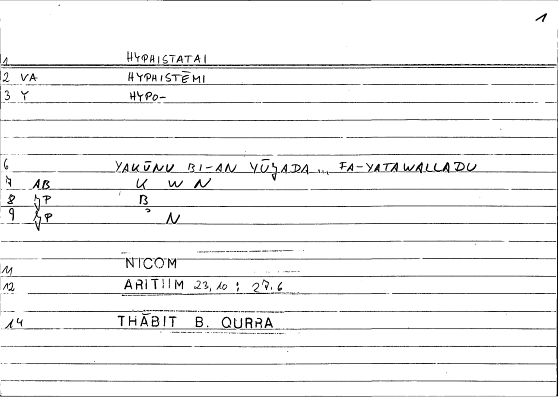 1
1 HYPHISTATAI
2 VA HYPHISTĒMI
3 Y HYPO-
6 YAKŪNU BI-AN YŪǦADA... FA-YATAWALLADU
7 AB K W N
8 P B
9 P N
11 NICOM
12 ARITIIM 23,10 ; 27.6
14 THĀBIT B. QURRA